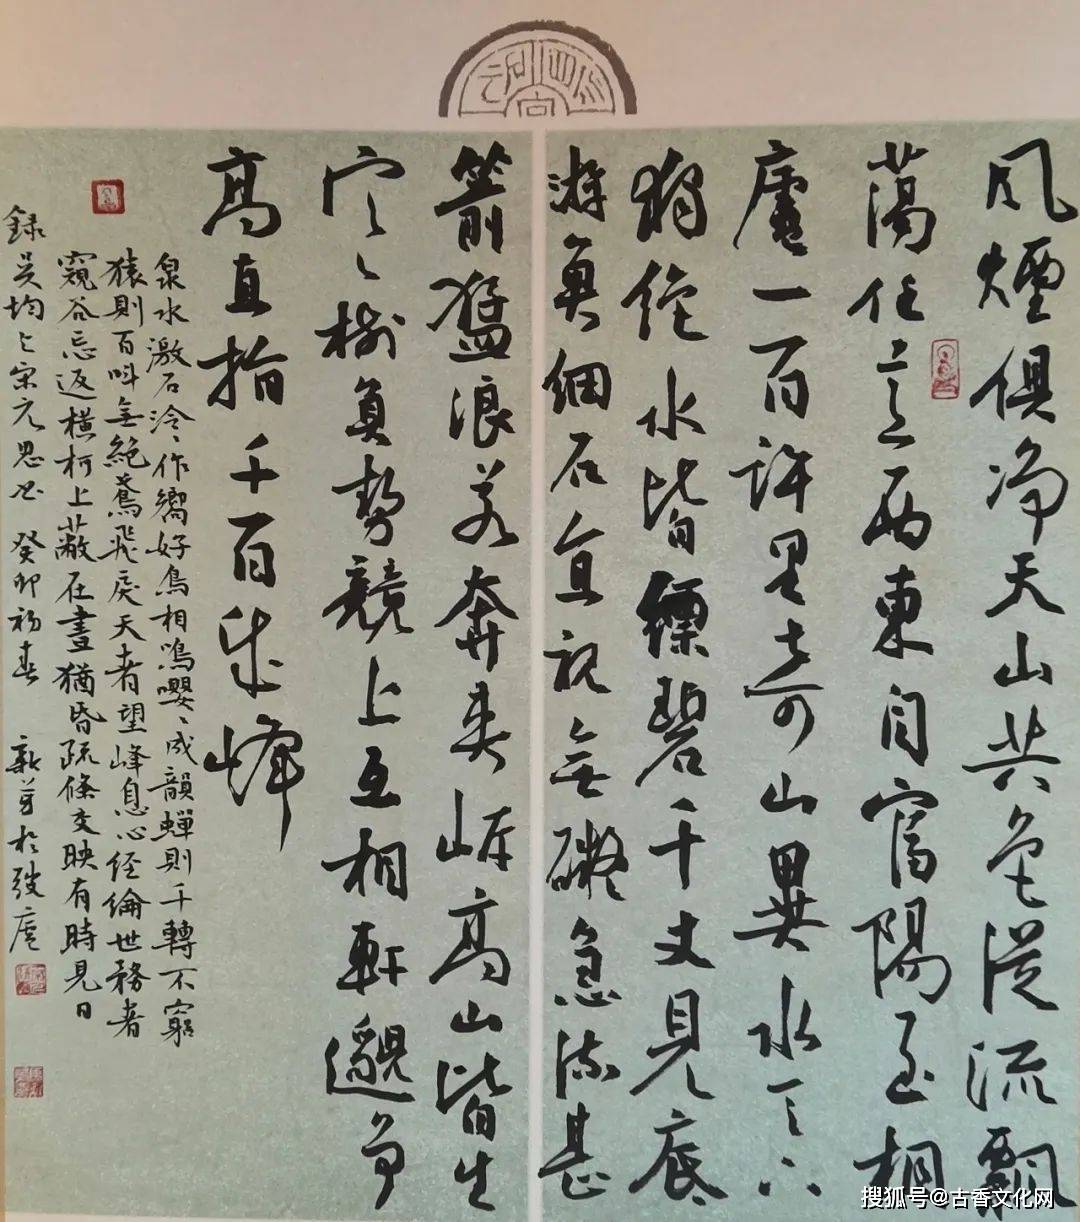 風煙俱净天山共色從流飄
蕩任意西東自富陽至桐
廬一百許里奇山異水天下
獨絕水皆縹碧千丈見底
游魚細石直視無礙急湍甚
箭猛浪若奔夾岸高山皆生
寒樹負勢競上互相軒邈爭
高直指千百成峰
泉水激石泠〻作響好鳥相鳴嚶〻成韻蟬則千轉不窮
猿則百叫無絕鳶飛戾天者望峰息心经綸世務者
窺谷忘返橫柯上蔽在晝猶昏疏條交映有時見日
録吴均与宋元思书 癸卯初春 於弢廬
搜狐号@古香文化网